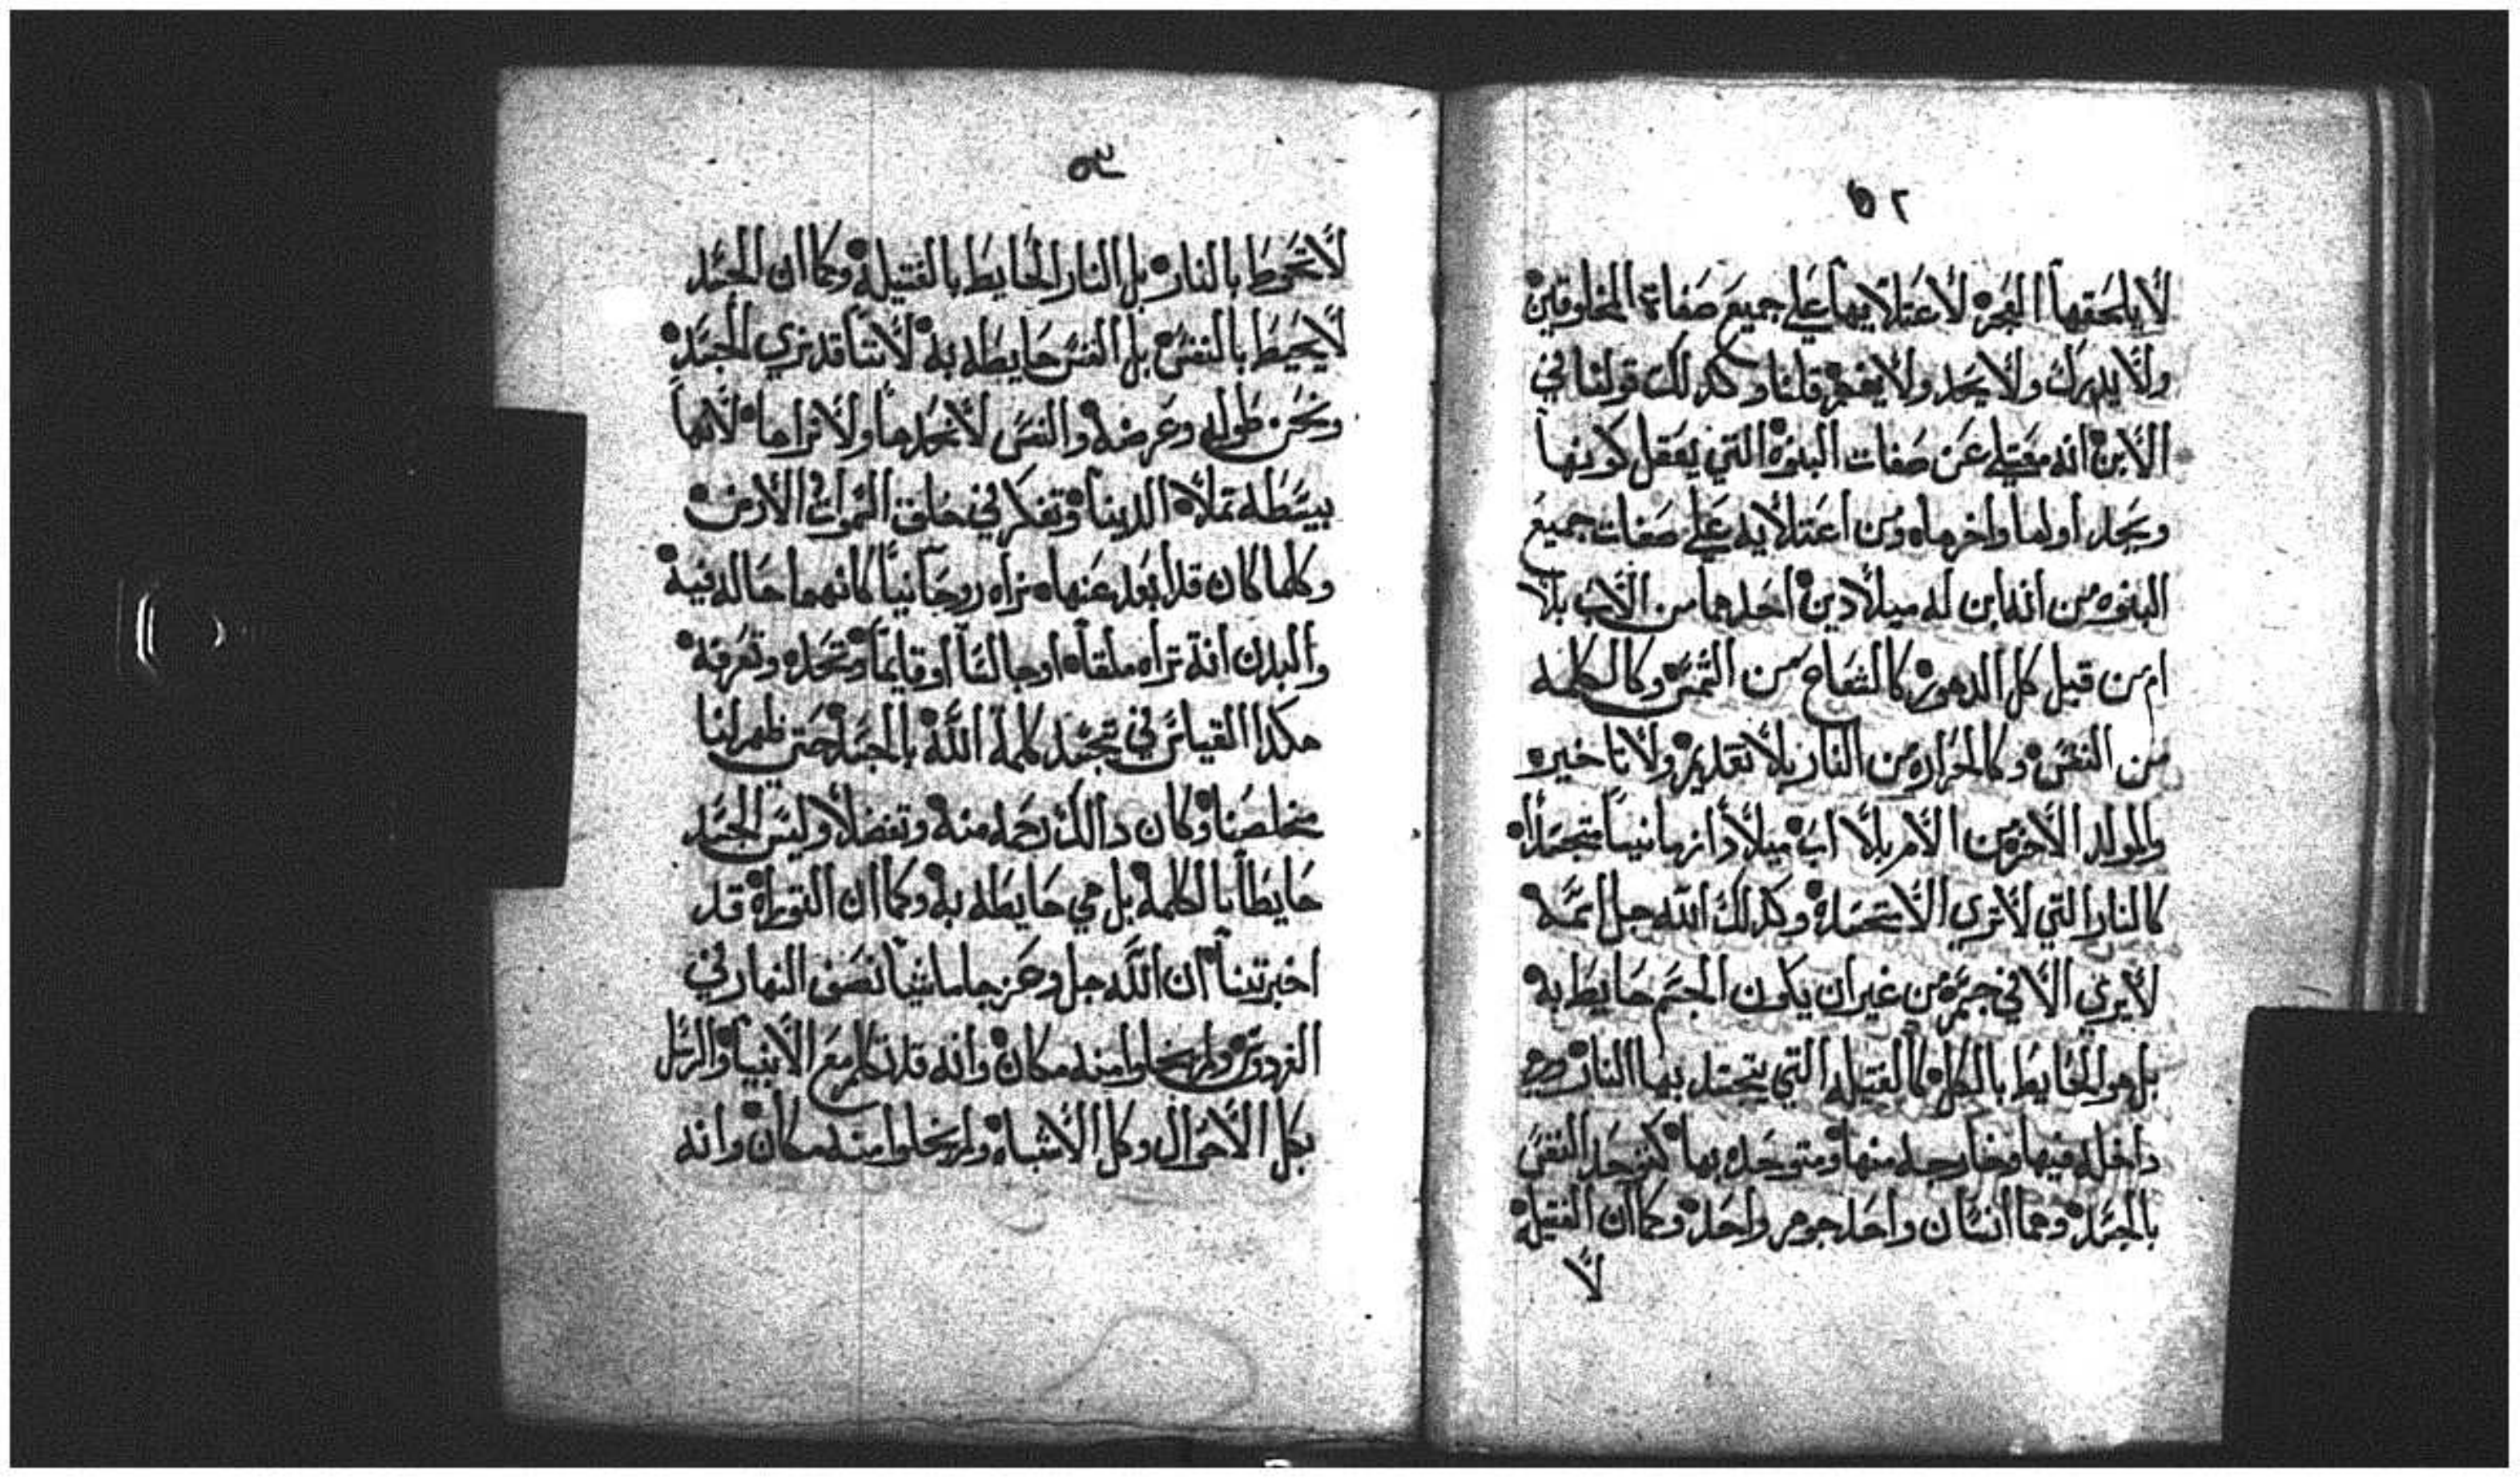 ٥٢
لا يلحقها العجز لاعتلايها علي جميع صفاة المخلوقين
ولا يدرك ولا يحد ولا يفهم قلنا وكدلك قولنا في
الابن انه معتلي عن صفات البنوة التي يعقل كونها
ويحد اولها واخرها ومن اعتلايه علي صفات جميع
البنوه من انه ابن له ميلادين احدهما من الاب بلا
ام من قبل كل الدهور كالشعاع من الشمس وكالكلمه
من النفس وكالحراره من النار بلا تقدير ولا تاخير
والمولد الاخر من الام بلا اب ميلادا زمانيا متجسدا
كالنار التي لا تري الا متجسدة وكدلك الله جل اسمه
لا يري الا في جسم من غير ان يكون الجسم حايط به
بل هو الحايط بالكل كالفتيله التي يتجسد بها النار وهي
داخله فيها وخارجه منها ومتوحده بها كتوحد النفس
بالجسد وهما انسان واحد جوهر واحد وكما ان الفتيلة
لا
٥٣
لا تحوط بالنار بل النار الحايط بالفتيلة وكما ان الجسد
لا يحيط بالنفس بل النفس حايطه به لاننا قد نري الجسد
ونحن طوله وعرضه والنفس لا نحدها ولا نراها لانها
بسيطه تملاه الدينا وتفكر في خلق السموات الارض
وكلما كان قد ابعد عنها نراه روحانيا كانهما حاله فيه
والبدن انه تراه ملقاه او جالسا او قايما وتحده وتعرفه
هكدا القياس في تجسد كلمة الله بالجسد حتي ظهر لنا
مخلصنا وكان دالك رحمه منه وتفضلا وليس الجسد
حايطا بالكلمة بل هي حايطه به وكما ان التوراة قد
اخبرتنا ان الله جل وعز جا ماشيا نصف النهار في
الفردوس ولم يخلوا منه مكان وانه قد تكلم مع الانبيا والرسل
بكل الاحوال وكل الاشباه ولم يخلوا منه مكان وانه